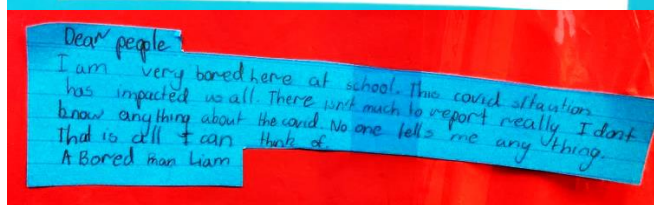 Dear people
I am very bored here at school. This covid sitaution
has impacted us all. There isn't much to report really I dont
know anything about the covid. No one tells me any thing.
That is all I can think of.
A Bored man Liam